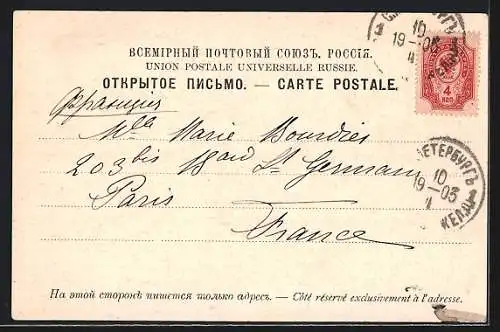 ВСЕМІРНЫЙ ПОЧТОВЫЙ СОЮЗЪ. РОССІЯ.
UNION POSTALE UNIVERSELLE RUSSIE.
ОТКРЫТОЕ ПИСЬМО. — CARTE POSTALE.
4
КОП
10
19—03
Франція
Mlle Marie Bourdies
203 bis Bard St Germain
Paris
France
ПЕТЕРБУРГЪ
10
19—03
На этой сторонѣ пишется только адресъ. — Côté réservé exclusivement à l'adresse.